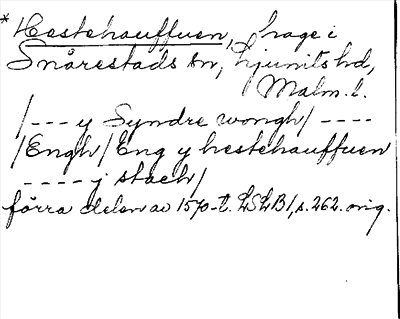 * Hestehauffuen, hage i
Snårestads sn, Ljunits hd,
Malm. l.
/--- y Syndre wongh/ ----
/Engh/ Eng y hestehauffuen
---- j stach/
förra delen av 1570-t. LSLB 1, s. 262. orig.